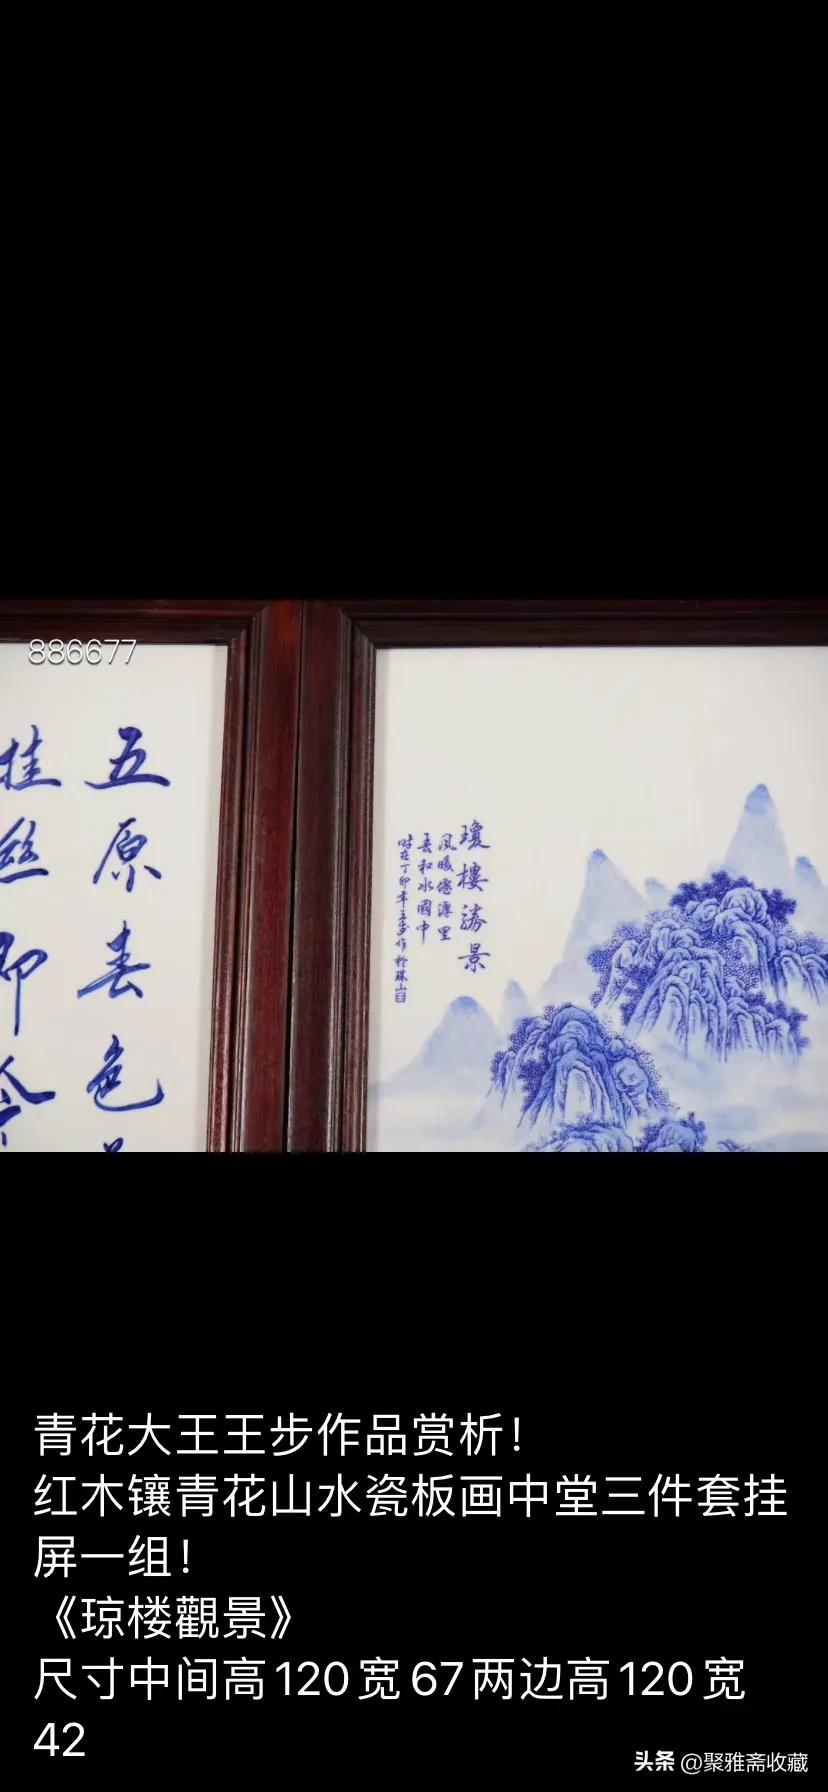 886677
五原春色
挂丝即
瓊樓勝景
風暖僊源里
春和水國中
時在丁卯年王步作於珠山
青花大王王步作品赏析！
红木镶青花山水瓷板画中堂三件套挂
屏一组！
《琼楼觀景》
尺寸中间高120宽67两边高120宽
42
头条 @聚雅斋收藏